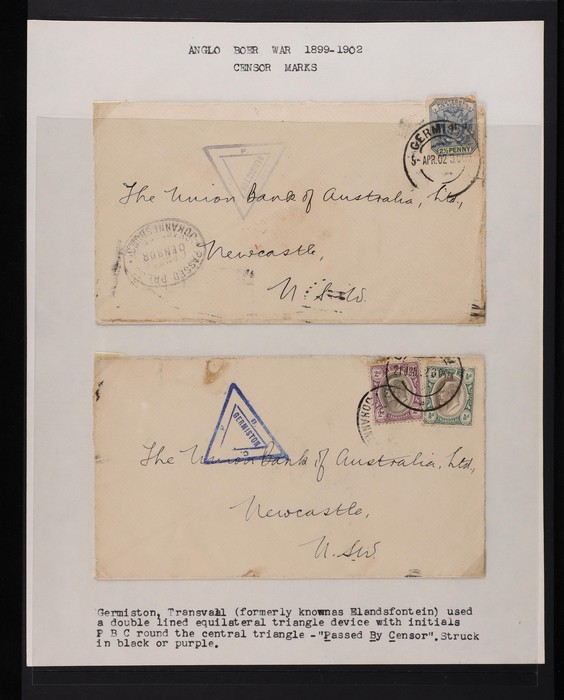 ANGLO BOER WAR 1899-1902
CENSOR MARKS
2½ PENNY
GERMIS
5- APR.02
P
The Union Bank of Australia, Ltd.,
PASSED PRE
CENSOR
JOHANNESBURG
Newcastle,
N.S.W.
21 JUN
P
B
GERMISTON
C
The Union Bank of Australia, Ltd.,
Newcastle,
N.S.W.
Germiston, Transvahl (formerly knownas Elandsfontein) used
a double lined equilateral triangle device with initials
P B C round the central triangle -"Passed By Censor". Struck
in black or purple.